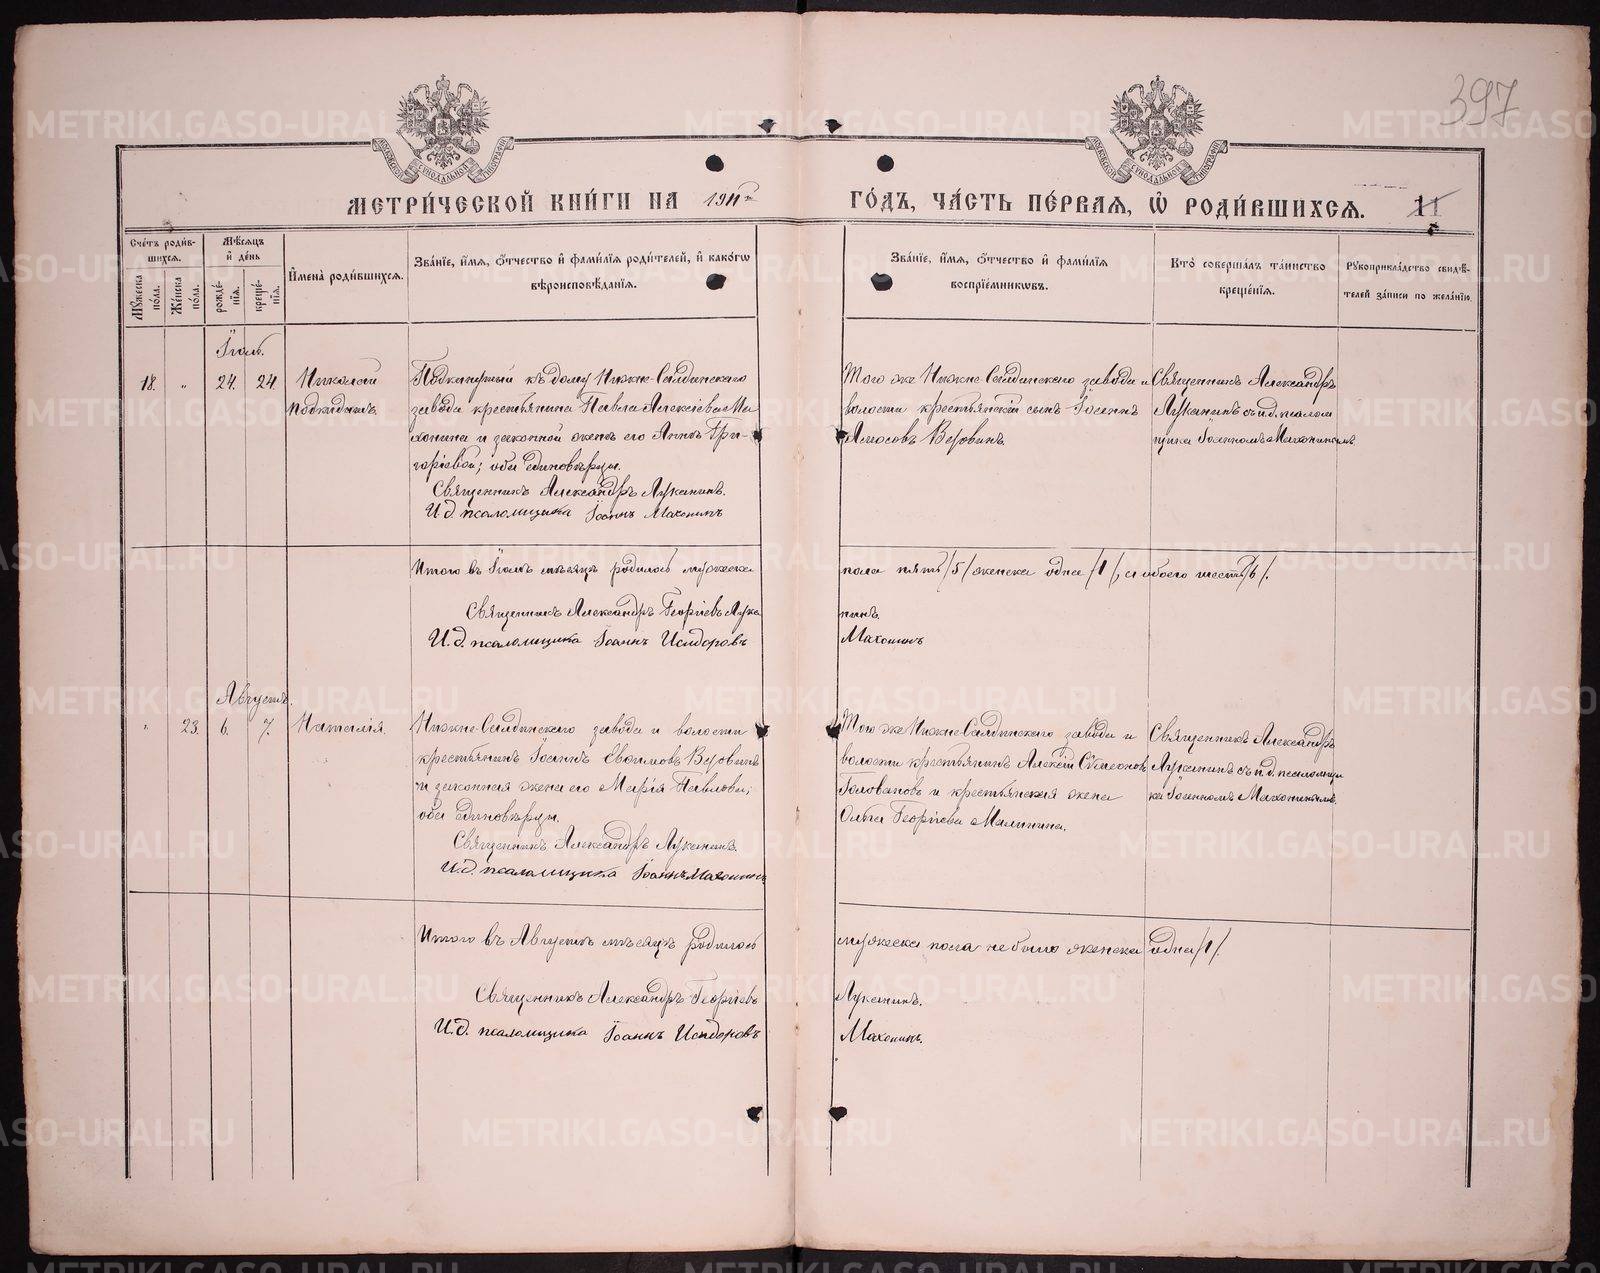 397
МЕТРИ́ЧЕСКОЙ КНИ́ГИ НА 1911й ГО́ДЪ, ЧА́СТЬ ПЕ́РВАЯ, Ѡ҆ РОДИ́ВШИХСѦ. 11
Сче́тъ роди́в-
шихсѧ.
Мꙋ́жеска по́ла.
Же́нска по́ла.
Мѣ́сѧцъ
и҆ де́нь
рожде́-
нїѧ.
креще́-
нїѧ.
И҆мена̀ роди́вшихсѧ.
Зва́нїе, и҆́мѧ, ѻ҆́тчество и҆ фами́лїѧ роди́телей, и҆ како́гѡ
вѣроисповѣ́данїѧ.
Зва́нїе, и҆́мѧ, ѻ҆́тчество и҆ фами́лїѧ
воспрїе́мникѡвъ.
Кто̀ соверша́лъ та́инство
креще́нїѧ.
Рꙋкоприкла́дство свидѣ́-
телей за́писи по жела́нїю.
Іюль.
18. „ 24. 24.
Николай
подкидышъ.
Подкинутый къ дому Нижне-Салдинскаго
завода крестьянина Павла Алексіева Ма
хонина и законной женѣ его Аннѣ Гри-
горіевой; оба единовѣрцы.
Священникъ Александръ Луканинъ.
И.д. псаломщика Іоаннъ Махонинъ
Того же Нижне-Салдинскаго завода и
волости крестьянскій сынъ Іосифъ
Амосовъ Веровинъ.
Священникъ Александръ
Луканинъ съ и.д. псалом
щика Іоанномъ Махонинымъ.
Итого въ Іюлѣ мѣсяцѣ родилось мужеска
пола пять /5/ женска одна /1/, а обоего шесть /6/.
Священникъ Александръ Георгіевъ Лука
нинъ.
И.д. псаломщика Іоаннъ Исидоровъ
Махонинъ
Августъ.
„ 23. 6. 7.
Наталія.
Нижне-Салдинскаго завода и волости
крестьянинъ Іоаннъ Евфимовъ Веровинъ
и законная жена его Марія Павлова;
оба единовѣрцы.
Священникъ Александръ Луканинъ.
И.д. псаломщика Іоаннъ Махонинъ
Того же Нижне-Салдинскаго завода и
волости крестьянинъ Алексій Сѵмеоновъ
Головановъ и крестьянская жена
Ольга Георгіева Малинина.
Священникъ Александръ
Луканинъ съ и.д. псаломщи
ка Іоанномъ Махонинымъ.
Итого въ Августѣ мѣсяцѣ родилось
мужеска пола не было женска одна /1/.
Священникъ Александръ Георгіевъ
Луканинъ.
И.д. псаломщика Іоаннъ Исидоровъ
Махонинъ.
METRIKI.GASO-URAL.RU